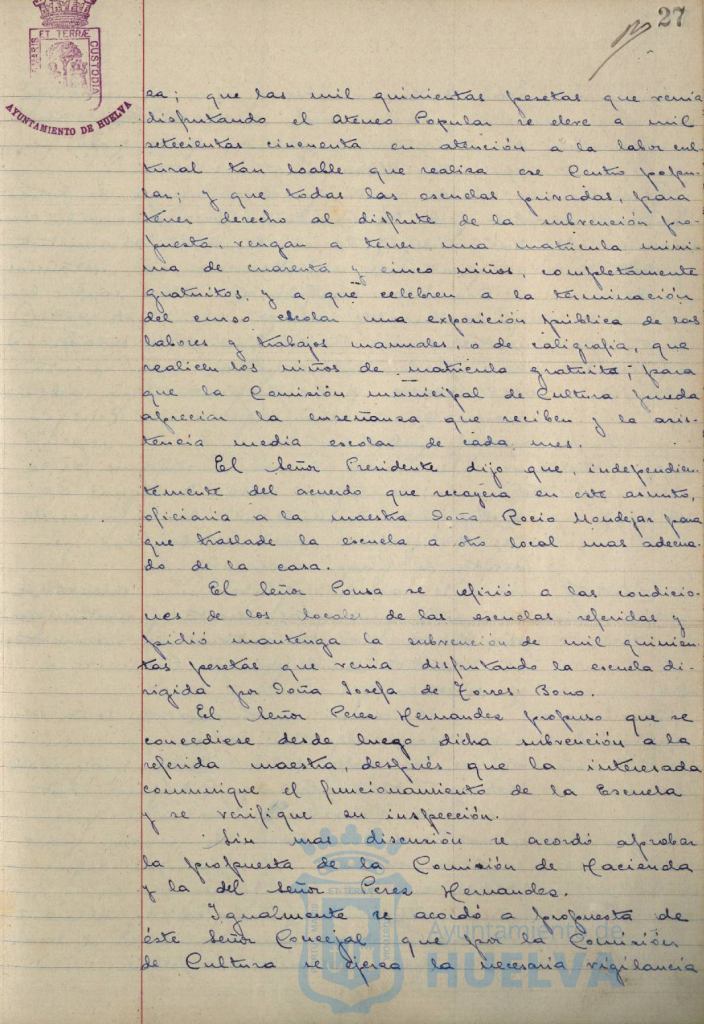 27
PORTUS MARIS ET TERRÆ CUSTODIA
AYUNTAMIENTO DE HUELVA
ca; que las mil quinientas pesetas que venia
disfrutando el Ateneo Popular se eleve a mil
setecientas cincuenta en atención a la labor cul-
tural tan loable que realiza ese Centro popu-
lar; y que todas las escuelas privadas, para
tener derecho al disfrute de la subvención pro-
puesta, vengan a tener una matricula mini-
ma de cuarenta y cinco niños, completamente
gratuitos, y a que celebren a la terminación
del curso escolar una exposición pública de las
labores y trabajos manuales, o de caligrafia, que
realicen los niños de matricula gratuita; para
que la Comisión municipal de Cultura pueda
apreciar la enseñanza que reciben y la asis-
tencia media escolar de cada mes.
El Señor Presidente dijo que, independien-
temente del acuerdo que recayera en este asunto,
oficiaria a la maestra Doña Rocio Mondejar para
que traslade la escuela a otro local mas adecua-
do de la casa.
El Señor Ponsa se refirió a las condicio-
nes de los locales de las escuelas referidas y
pidió mantenga la subvención de mil quinien-
tas pesetas que venia disfrutando la escuela di-
rigida por Doña Josefa de Torres Bono.
El Señor Perez Hernandez propuso que se
concediese desde luego dicha subvención a la
referida maestra, después que la interesada
comunique el funcionamiento de la Escuela
y se verifique su inspección.
Sin mas discusión se acordó aprobar
la propuesta de la Comisión de Hacienda
y la del Señor Perez Hernandez.
Igualmente se acordó a propuesta de
éste Señor Concejal que por la Comisión
de Cultura se ejerza la necesaria vigilancia
Ayuntamiento de
HUELVA